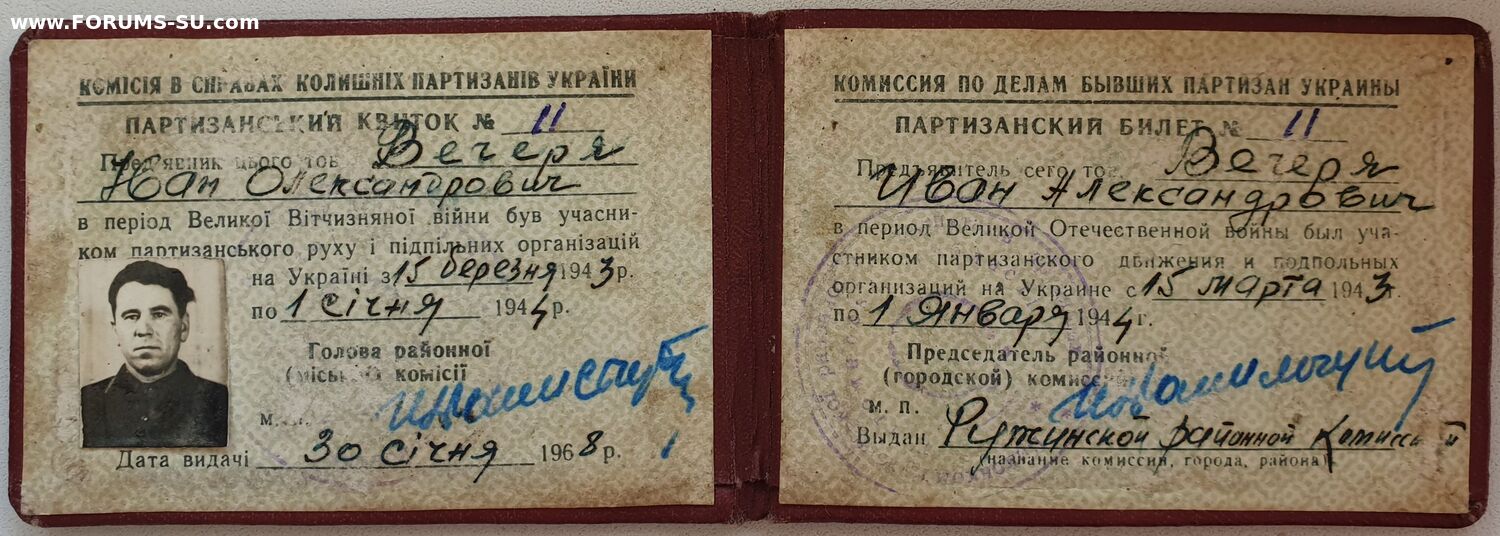 www.FORUMS-SU.com
КОМІСІЯ В СПРАВАХ КОЛИШНІХ ПАРТИЗАНІВ УКРАЇНИ
ПАРТИЗАНСЬКИЙ КВИТОК № 11
Пред'явник цього тов. Вечеря
Іван Олександрович
в період Великої Вітчизняної війни був учасни-
ком партизанського руху і підпільних організацій
на Україні з 15 березня 1943 р.
по 1 січня 1944 р.
Голова районної
(міської) комісії
М. П.
Дата видачі 30 січня 1968 р.
КОМИССИЯ ПО ДЕЛАМ БЫВШИХ ПАРТИЗАН УКРАИНЫ
ПАРТИЗАНСКИЙ БИЛЕТ № 11
Предъявитель сего тов. Вечеря
Иван Александрович
в период Великой Отечественной войны был уча-
стником партизанского движения и подпольных
организаций на Украине с 15 марта 1943 г.
по 1 января 1944 г.
Председатель районной
(городской) комиссии
М. П.
Выдан Ружинской районной комиссией
(название комиссии, города, района)